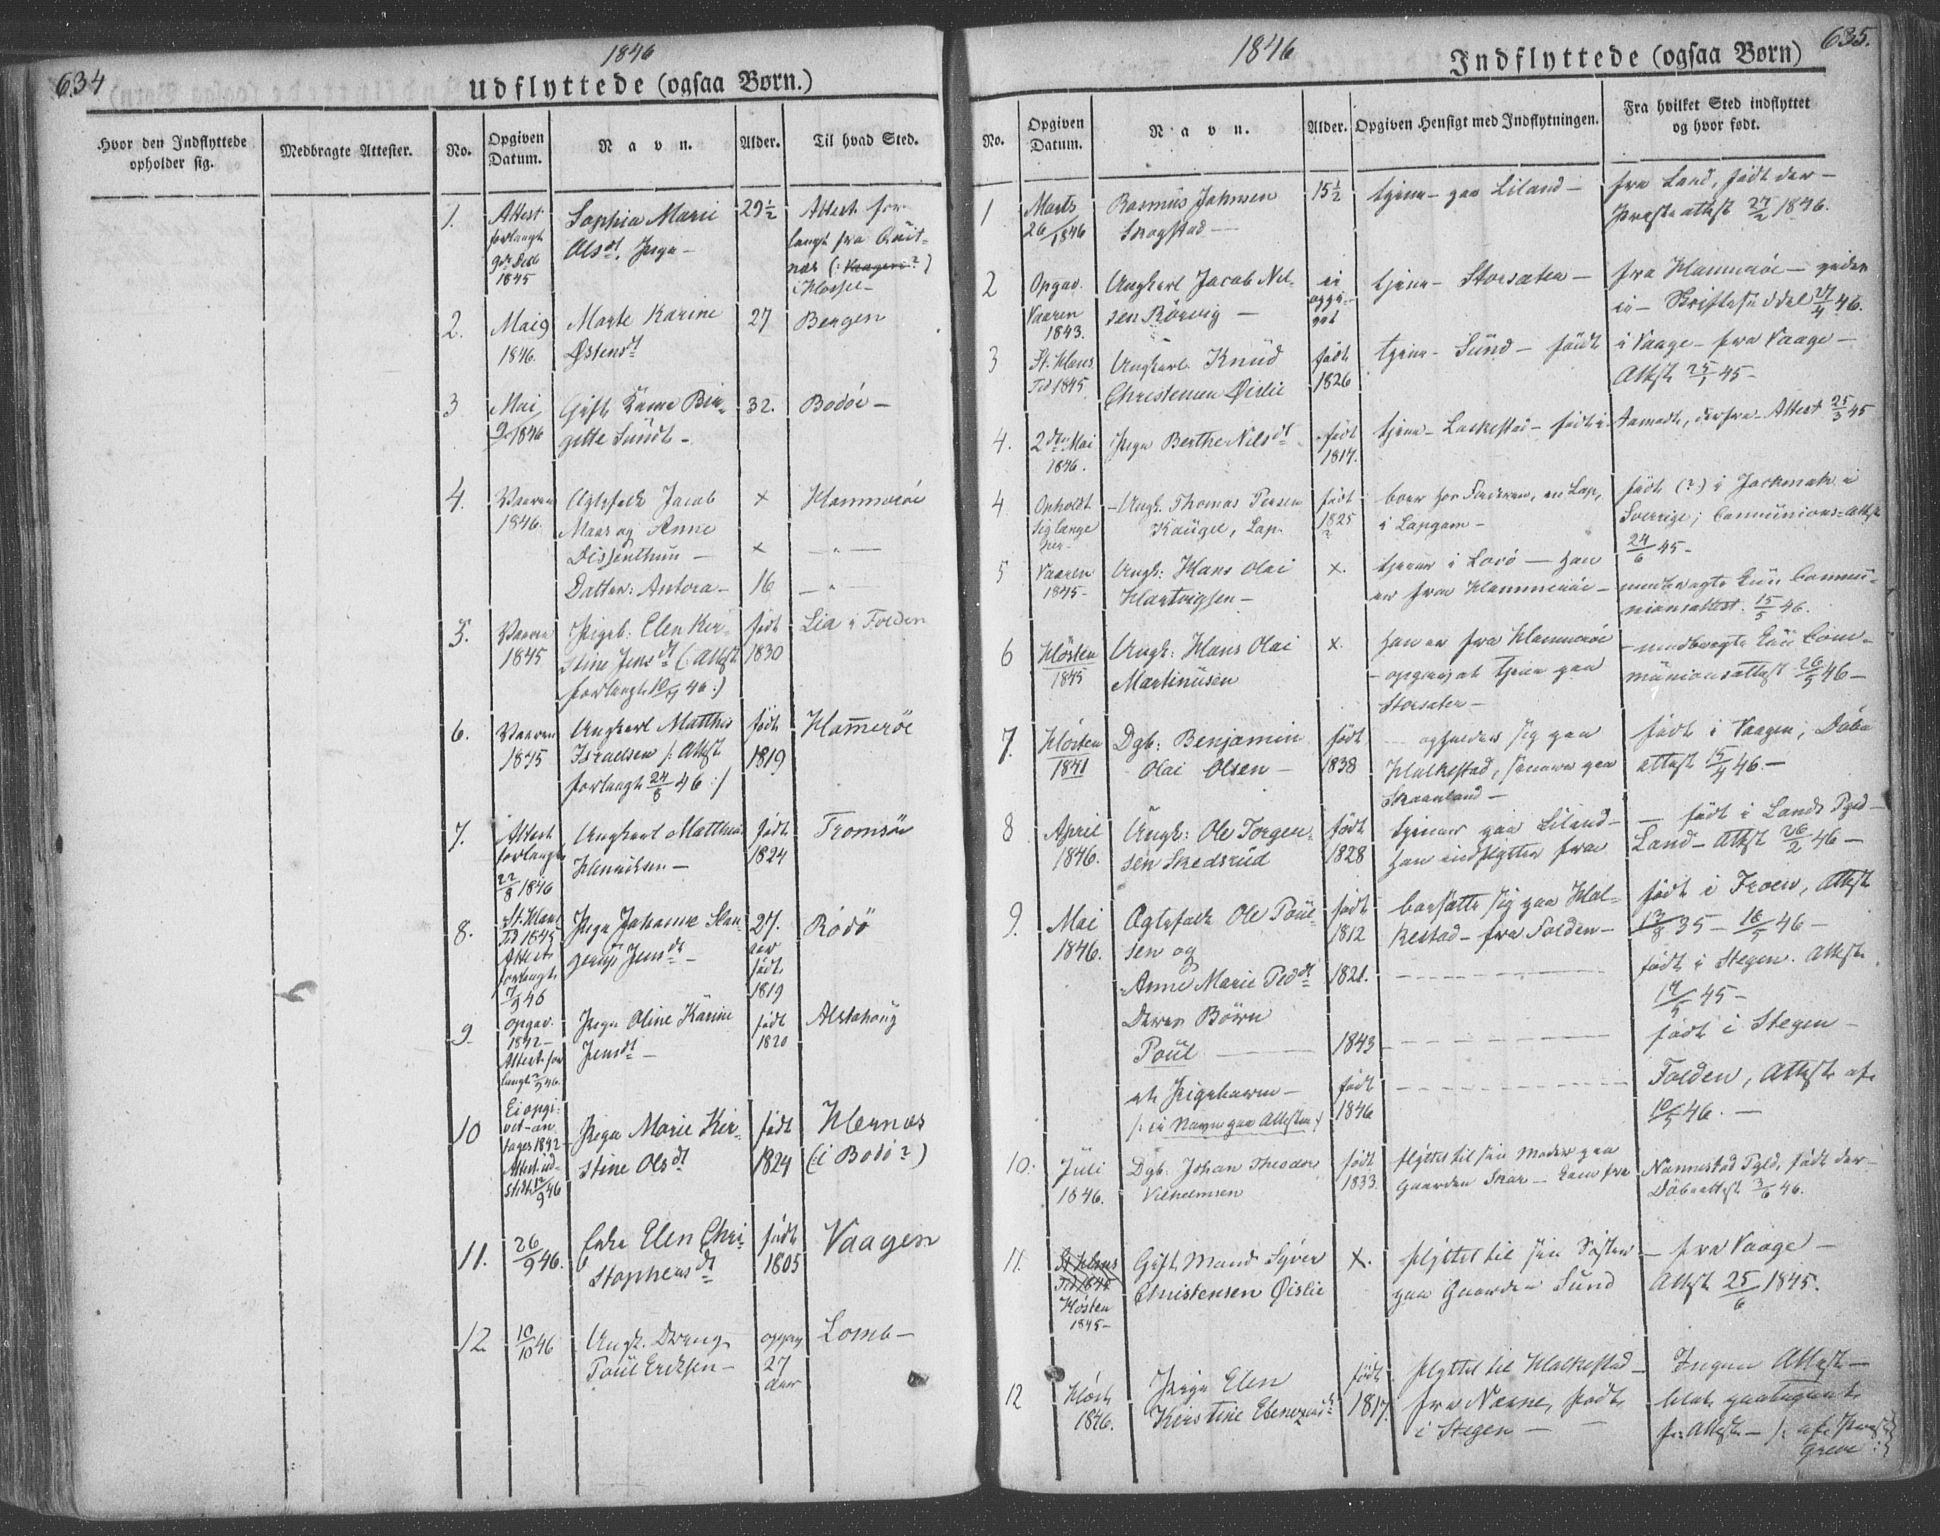 634
1846
Udflyttede (ogsaa Børn.)
Hvor den Indflyttede
opholder sig.
Medbragte Attester.
No.
Opgiven
Datum.
Navn.
Alder.
Til hvad Sted.
1.
Attest
forlangt
9de Deb
1845
Sophia Marie
Olsdt, Pige -
29½
Attest for-
langt fra
næs (: Vaagen? )
2.
Mai 9
1846.
Marte Karine
Østensdt
27
Bergen
3
Mai
9 1846
Gift Bir-
gitte Sündt -
32.
Bodöe -
4.
Vaaren
1846.
Ægtefolk Jacob
Maas og Anne
Dissenthun -
Datter: Antora -
×
×
16
Hammeröe
- " -
- " -
5.
Vaaren
1845
Pigeb: Elen Kir-
stine Jensdt (: Attest
forlangt 10/9 46 :)
født
1830
Lia i Folden
6.
Vaaren
1845
Ungkarl Matthis
Israelsen /: Attest
forlangt 24/8 46 :/
født
1819
Hameröe
7.
Attest
forlangt
22/8 1846
Ungkarl Matthias
Henriksen -
født
1824
Tromsöe
8.
St. Hans
Tid 1845
Attest
forlangt
7/9 46
Pige Johanna
Jensdt -
27.
aar
født
1819
Rödö
9
Opgav.
1842 -
Attest for
langt 7/9 46.
Pige Oline Karine
Jensdt -
født
1820
Alstahoug
10
Ei opgi-
vet - an
tages 1842
Attest ud-
stedt 12/9 46
Pige Marie Kir-
stine Olsdt
født
1824
Hernæs
(: i Bodö? )
11.
26/9 46.
Enke Elen Chri-
stophersdt
født
1805
Vaagen
12
10/10 46
Ungk. Dreng
Poül Ericksen -
opgav
27
aar
Lomb -
635.
1846
Indflyttede (ogsaa Børn)
No.
Opgiven
Datum.
Navn.
Alder.
Opgiven Hensigt med Indflytningen.
Fra hvilket Sted indflyttet
og hvor født.
1
Marts
26/1846
Rasmus Johnsen
Skogstad -
15½
tjene - paa Liland -
fra Land, født der -
Præsteattest 27/2 1846.
2
Opgav.
Vaaren
1843.
Ungkarl Jacob Nil-
sen Rörvig -
ei
opgi-
vet
tjene - Storsæter -
fra Hammeröe -
ei - Skriftesüddel 27/4 46.
3
St. Hans
Tid 1845.
Ungkarl Knüd
Christensen Öislie
født
1826
tjene - Sünd - født
i Vaage - fra Vaage -
Attest 25/1 45 -
4.
2den Mai
1846.
Pige Berthe Nilsdt
født
1817.
tjene - Laskestad - født i
Samedt, derfra Attest 25/3 45
4
Opholdt
sig længe
her -
- Ungk. Thomas Persen
Kaügel, Lap.
født
1825
?
boer hos Faderen, en Lap,
i Lapgam -
født (?) i Jockmok i
Sverige; Communions=Attest
24/6 45 -
5
Vaaren
1845 -
Ungk: Hans Olai
Hartvigsen -
×.
tjener i Lovö - han
er fra Hammeröe -
medbragte Communi-
onsattest. 15/5 46.
6
Hösten
1845
Ungk: Hans Olai
Martinüsen
×.
Han er fra Hameröe
- opgav at tjene paa
Storsæter -
- medbragte Com-
münionsattest 26/5 46 -
7.
Hösten
1841
Dgb: Benjamin
Olai Olsen -
født
1838
- opholder sig paa
Halkestad, senere paa
Skaanland -
født i Vaagen; Döbe
attest 15/4 46 -
8
April
1846.
Üngk: Ole Torgen-
sen Skedsrüd
født
1828
tjener paa Liland -
Han indflytter fra
- født i Lands Pgd -
Land - Attest 26/2 46 -
9.
Mai
1846.
Ægtefolk Ole Poül-
sen og
Anne Marie Pedsdt
Deres Börn
Poül -
et Pigebarn -
/: ei Navn paa Attesten :/
født
1812
1821.
1843
født
1846
bosatte sig paa Hal-
kestad - fra Folden -
født i Froen, Attest
13/8 35 - 16/5 46 -
født i Stegen. Attest
17/5 45 -
født i Stegen -
Folden, Attest af
10/5 46. -
10.
Jüli
1846.
Dgb. Johan Theodor
Vilhelmsen
født
1833.
flyttet til sin Moder paa
Gaarden Skar - kom fra
Nannestad Pgld. født der -
Döbeattest 3/6 46.
11.
St Hans
Tid 1845
Hösten
1845 -
Gift Mand Syver
Christensen Öislie
×.
flyttet til sin Söster
paa Gaarden Sünd
- fra Vaage -
Attest 25/6 1845.
12
Höst
1846.
Pige Elen
Kirstine Ebenezersdt
født
1817.
flyttet til Halkestad -
fra Næsne, født
i Stegen -
Ingen Attest -
blot paategnet
pr: Attest - /: af Præst
Greve :/